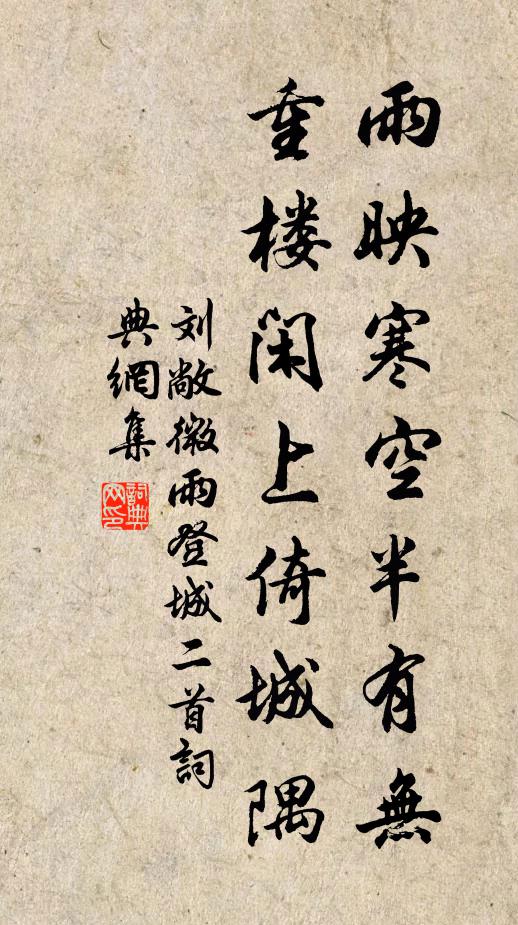 雨映寒空半有無
重楼閑上倚城隅
刘敞微雨登城二首詞
典網集
詞典
网印